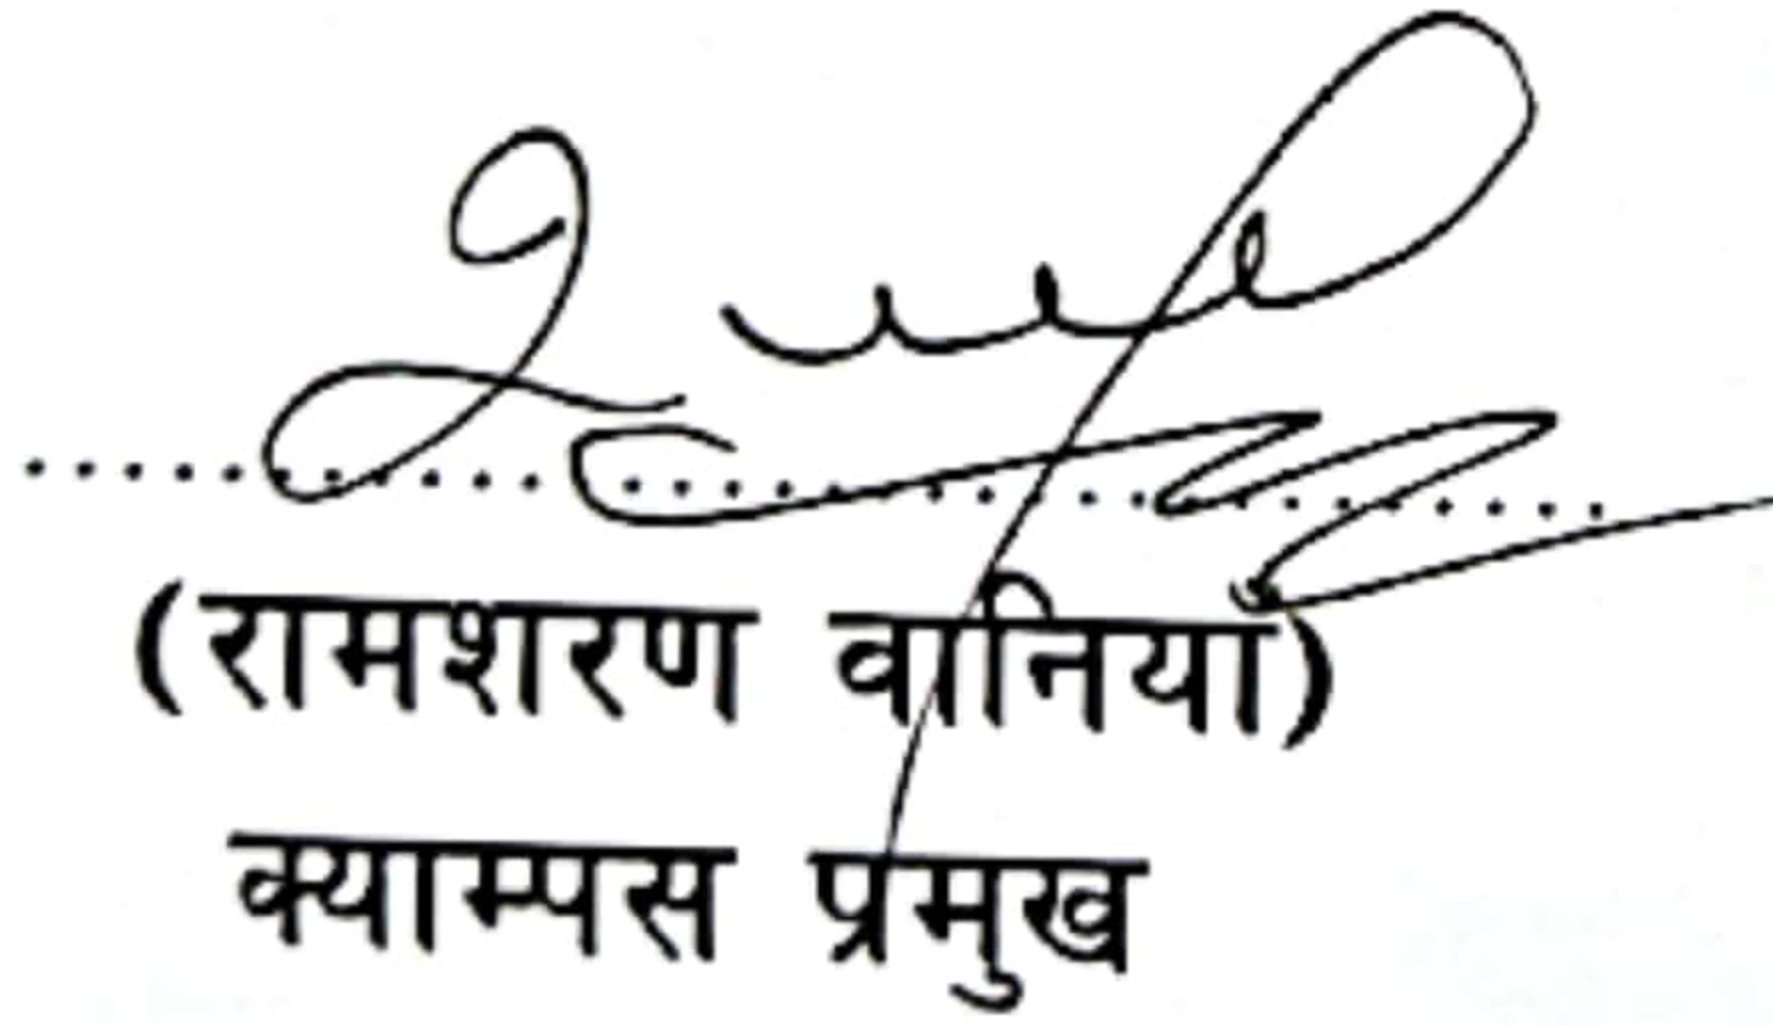 (रामशरण वानिया)
क्याम्पस प्रमुख